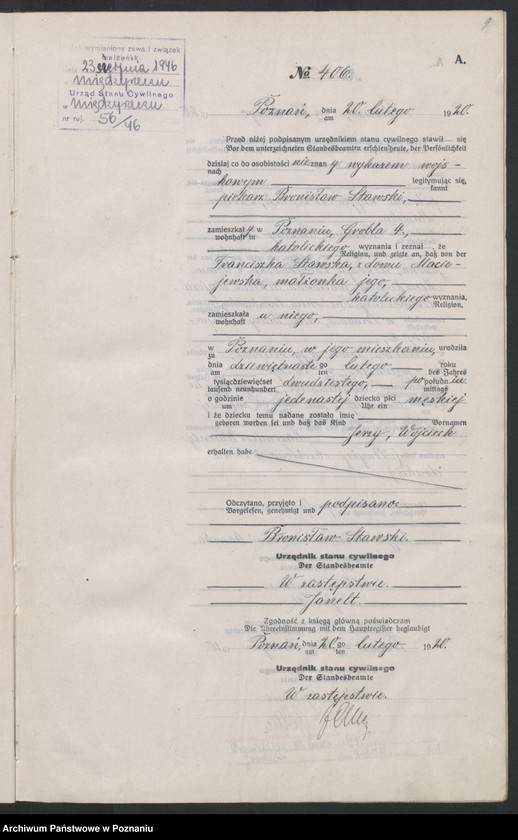 9
A.
wymieniony zawarł związek
małżeński
23 sierpnia 1946
w Międzyrzeczu
Urząd Stanu Cywilnego
w Międzyrzeczu
nr rej. 56/46
No. 406.
Poznań, dnia 20. lutego 1920.
am
Przed niżej podpisanym urzędnikiem stanu cywilnego stawił się
Vor dem unterzeichneten Standesbeamten erschien heute, der Persönlichkeit
dzisiaj co do osobistości nieznany wykazem wojs-
nach
kowym legitymując się,
kannt
piekarz Bronisław Sławski,
zamieszkały w Poznaniu, Grobla 4,
wohnhaft in
katolickiego wyznania i zeznał, że
Religion, und zeigte an, daß von der
Franciszka Sławska, z domu Macie-
jewska, małżonka jego,
katolickiego wyznania,
Religion,
zamieszkała u niego,
wohnhaft
w Poznaniu, w jego mieszkaniu, urodziła
zu
dnia dziewiętnastego lutego roku
am ten des Jahres
tysiącdziewięćset dwudziestego, po południu
tausend neunhundert mittags
o godzinie jedenastej dziecko płci męskiej
um Uhr ein
i że dziecku temu nadane zostało imię
geboren worden sei und daß das Kind Vornamen
Jerzy, Wojciech
erhalten habe
Odczytano, przyjęto i podpisano:
Vorgelesen, genehmigt und
Bronisław Sławski.
Urzędnik stanu cywilnego
Der Standesbeamte
W zastępstwie.
Janelt.
Zgodność z księgą główną poświadczam
Die Übereinstimmung mit dem Hauptregister beglaubigt
Poznań, dnia 20 go lutego 1920.
am ten
Urzędnik stanu cywilnego
Der Standesbeamte
W zastępstwie.
Archiwum Państwowe w Poznaniu